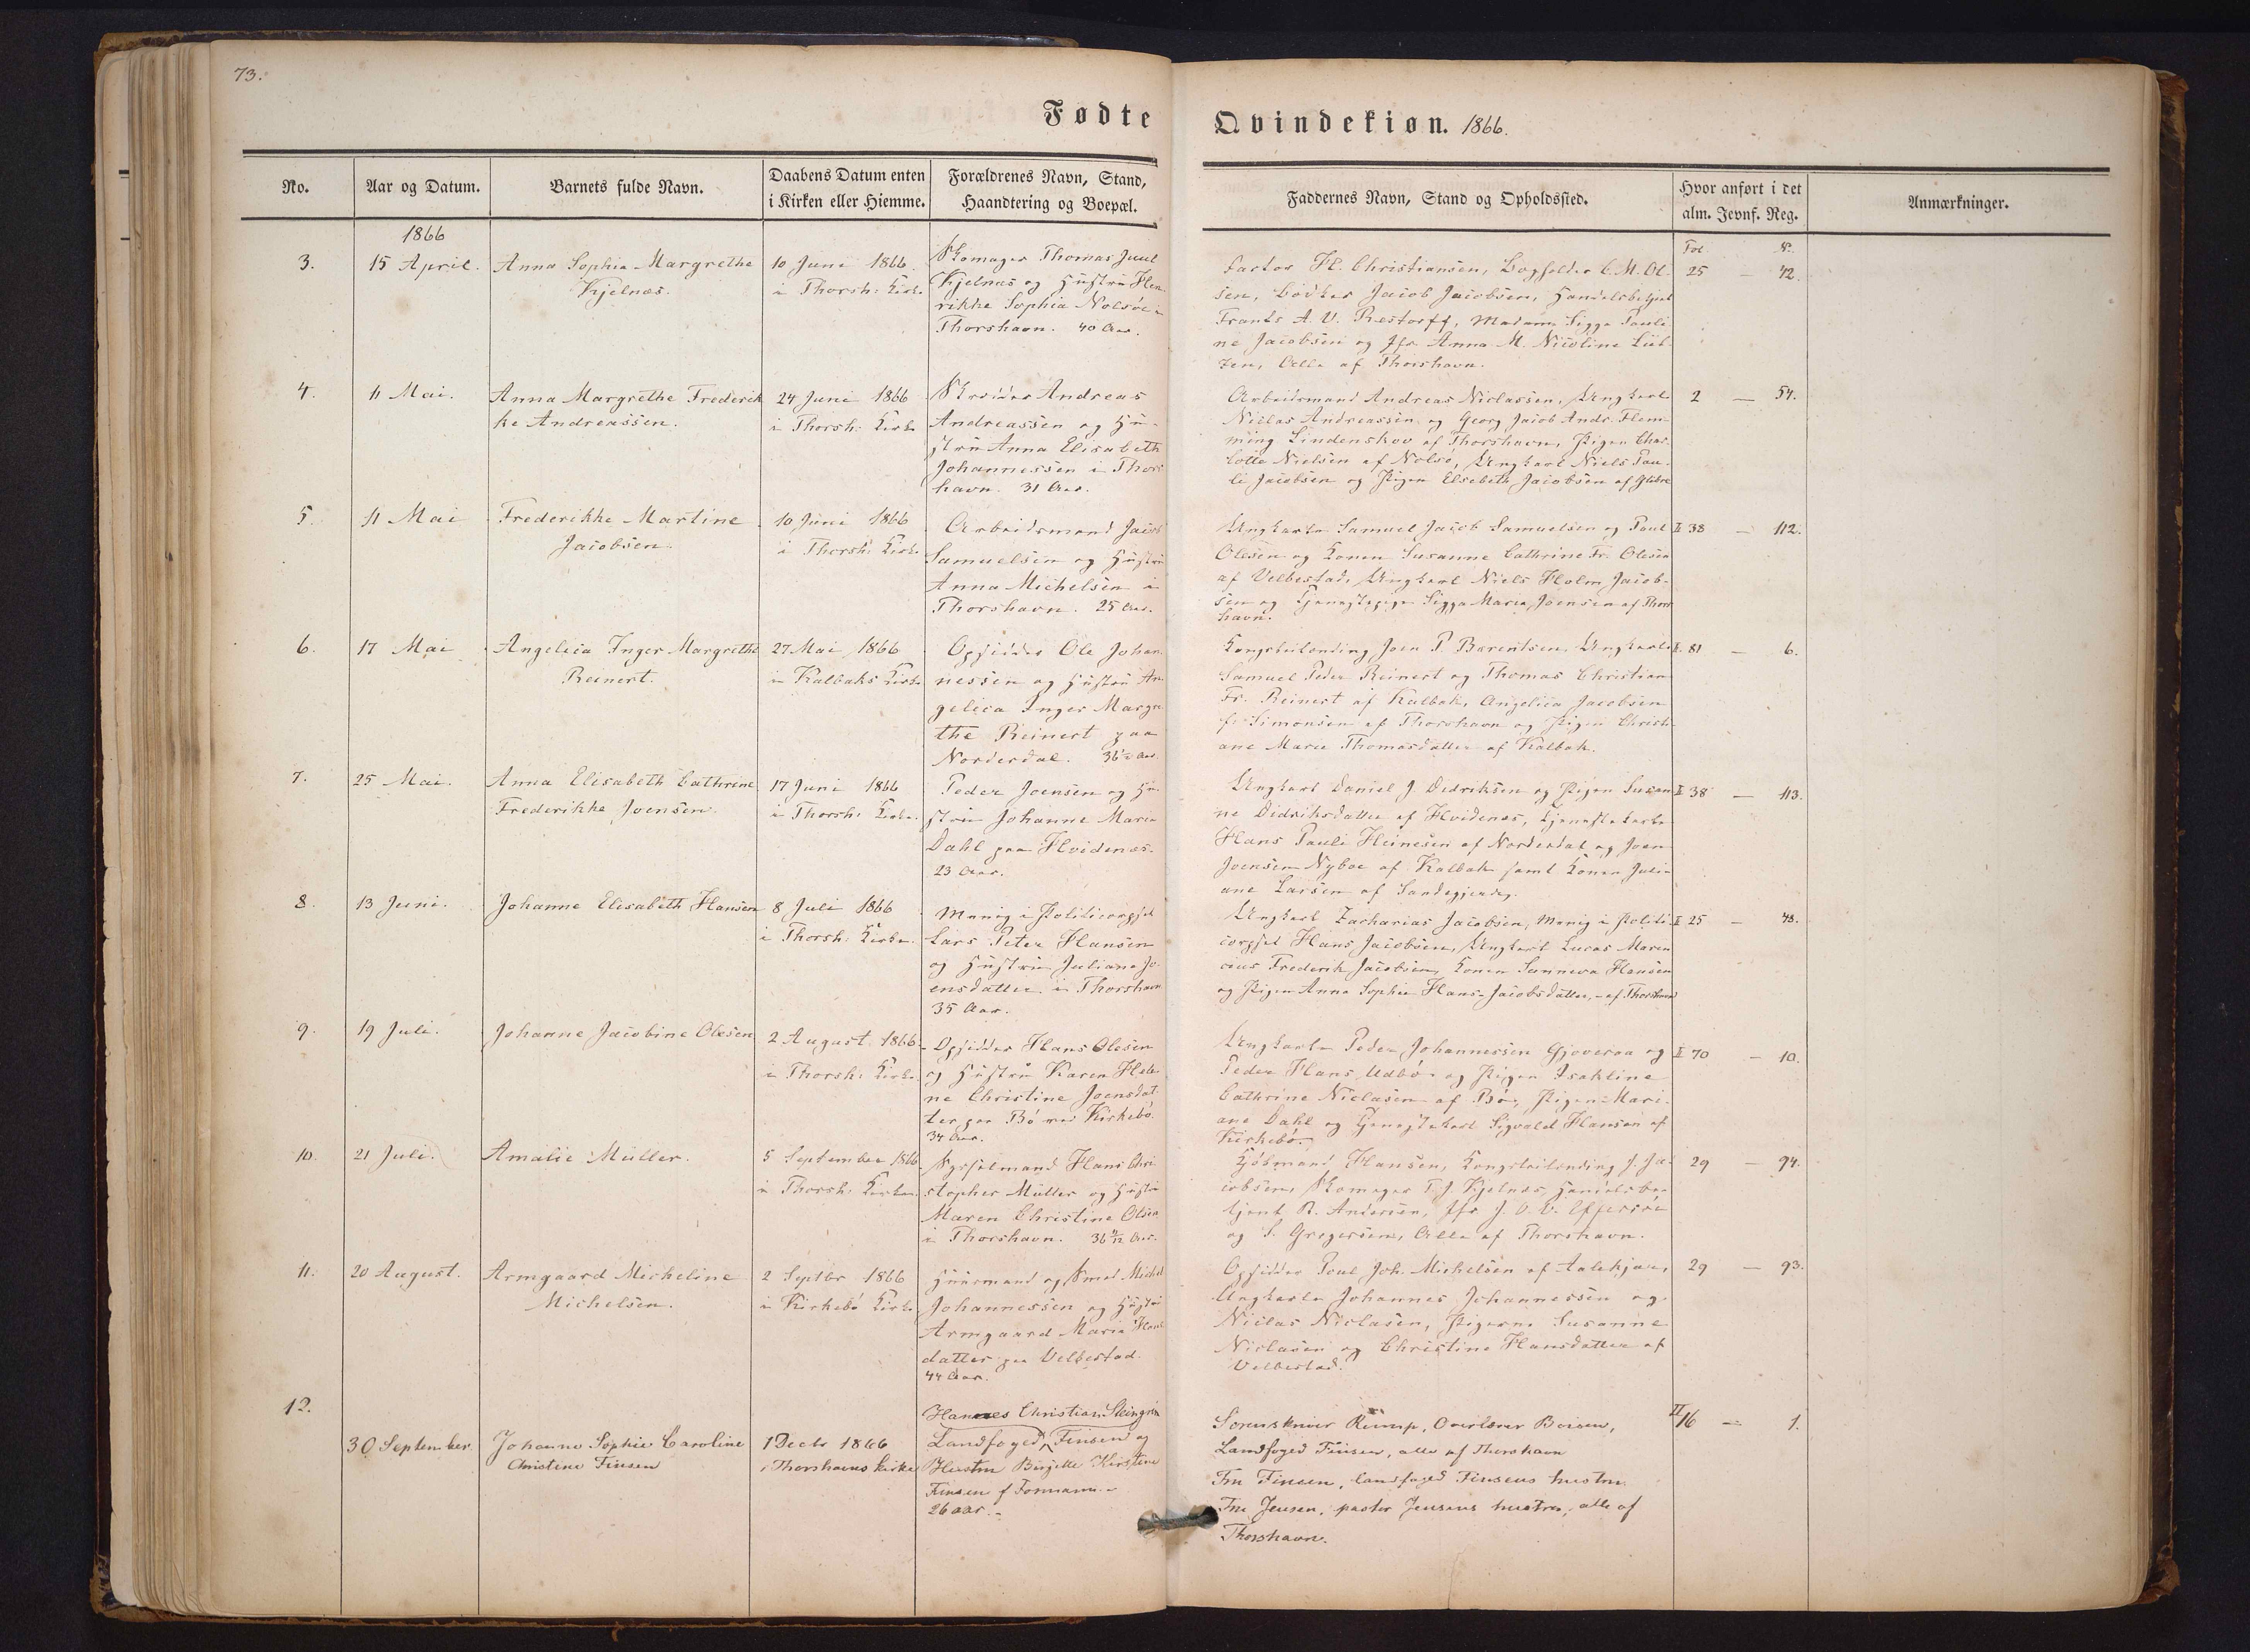 73.
Fødte
Qvindekiøn. 1866.
No.
Aar og Datum.
Barnets fulde Navn.
Daabens Datum enten
i Kirken eller Hiemme.
Forældrenes Navn, Stand,
Haandtering og Boepæl.
Faddernes Navn, Stand og Opholdssted.
Hvor anført i det
alm. Jevnf. Reg.
Anmærkninger.
1866
3.
15 April.
Anna Sophia Margrethe
Kjelnæs.
10 Juni 1866
i Thorsh: Kirke
Skomager Thomas Juul
Kjelnæs og Hustru Hen-
rikke Sophia Nolsöe i
Thorshavn. 40 Aar.
Factor H. Christiansen, Bogholder C. M. Ol-
sen, Bödker Jacob Jacobsen, Handelsbetjent
Frants A. V. Restorff, Madam Sigga Pauli-
ne Jacobsen og Jfr. Anna M. Nicoline Lüt-
zen, Alle af Thorshavn.
Fol. N.
25 — 42.
4.
11 Mai.
Anna Margrethe Frederik
ke Andreassen.
24 Juni 1866
i Thorsh: Kirke
Skrædder Andreas
Andreassen og Hu-
stru Anna Elisabeth
Johannessen i Thors
havn. 31 Aar.
Arbeidsmand Andreas Niclassen, Ungkarl
Niclas Andreassen og Georg Jacob Andr. Flem-
ming Lindenskov af Thorshavn, Pigen Char-
lotte Nielsen af Nolsö, Ungkarl Niels Pau-
li Jacobsen og Pigen Elsebeth Jacobsen af
2 — 54.
5.
11 Mai
Frederikke Martine
Jacobsen.
10 Juni 1866
i Thorsh: Kirke
Arbeidsmand Jacob
Samuelsen og Hustru
Anna Michelsen i
Thorshavn. 25 Aar.
Ungkarle Samuel Jacob Samuelsen og Poul
Olesen og Konen Susanne Cathrine Fr. Olesen
af Velbestad, Ungkarl Niels Holm Jacob-
sen og Tjenestepige Sigga Maria Joensen af Thors
havn.
II 38 — 112.
6.
17 Mai
Angelica Inger Margrethe
Reinert.
27 Mai 1866
i Kalbaks Kirke
Opsidder Ole Johan-
nessen og Hustru An-
gelica Inger Margre
the Reinert paa
Norderdal. 36½ Aar
Kongsbeilending Joen P. Barentsen, Ungkarle
Samuel Peder Reinert og Thomas Christian
Fr. Reinert af Kalbak, Angelica Jacobsen
f. Simonsen af Thorshavn og Pigen Christi-
ane Marie Thomasdatter af Kalbak.
I. 81 — 6.
7.
25 Mai.
Anna Elisabeth Cathrine
Frederikke Joensen
17 Juni 1866
i Thorsh: Kirke.
Peder Joensen og Hu-
stru Johanne Maria
Dahl paa Hvidenæs.
23 Aar.
Ungkarl Daniel J. Didriksen og Pigen Susan
ne Didriksdatter af Hvidenæs, Tjenestekarle
Hans Pauli Heinesen af Norderdal og Joen
Joensen Nyboe af Kalbak samt Konen Juli-
ane Larsen af Sandegjerde,
II 38 — 113.
8.
13 Juni.
Johanne Elisabeth Hansen
8 Juli 1866
i Thorsh: Kirke.
Menig i Politicorpset
Lars Peter Hansen
og Hustru Juliane Jo-
ensdatter i Thorshavn
35 Aar.
Ungkarl Zacharias Jacobsen, Menig i Politi-
corpset Hans Jacobsen, Ungkarl Lucas Maren
cius Frederik Jacobsen, Konen Sunneva Hansen
og Pigen Anna Sophie Hans-Jacobsdatter, - af Thorshavn
II 25 — 48.
9.
19 Juli.
Johanne Jacobine Olesen
2 August 1866.
i Thorsh: Kirke.
Opsidder Hans Olesen
og Hustru Karen Hele-
ne Christine Joensdat-
ter paa Bö ved Kirkebö.
34 Aar.
Ungkarle Peder Johannessen Gjoveraa og
Peder Hans Udbö og Pigen Isakline
Cathrine Niclasen af Bö, Pigen Mari-
ane Dahl og Tjenestekarl Sigvald Hansen af
Kirkebö.
I 70 — 10.
10.
21 Juli.
Amalie Müller.
5 September 1866
i Thorsh: Kirke.
Sysselmand Hans Chri
stopher Müller og Hustru
Maren Christine Olsen
i Thorshavn. Aar.
Kjöbmand Hansen, Kongsbeilending J. Ja-
cobsen, Skomager T. J. Kjelnæs, Handelsbe-
tjent R. Andersen, Jfr J. Effersöe
og S. Gregersen, Alle af Thorshavn.
29 — 94.
11.
20 August.
Armgaard Micheline
Michelsen.
2 Septbr 1866
i Kirkebö Kirke
Huusmand og Smed Michel
Johannessen og Hustru
Armgaard Maria Hans
datter paa Velbestad.
44 Aar.
Opsidder Poul Joh. Michelsen af Aalekjær,
Ungkarle Johannes Johannessen og
Niclas Niclasen, Pigerne Susanne
Niclasen og Christine Hansdatter af
Velbestad.
29 — 93.
12.
30 September
Johanne Sophie Caroline
Christine Finsen
1 Decbr 1866
i Thorshavns Kirke
Hannes Christian Steingrim
Landfoged Finsen og
Hustru Birgitte Kirstine
Finsen f Formann.
26 aar.
Sorenskriver Rümp, Overlærer Boisen,
Landfoged Finsen, alle af Thorshavn
Fru Finsen, landfoged Finsens hustru
Fru Jensen, pastor Jensens hustru, alle af
Thorshavn.
II 16 — 1.